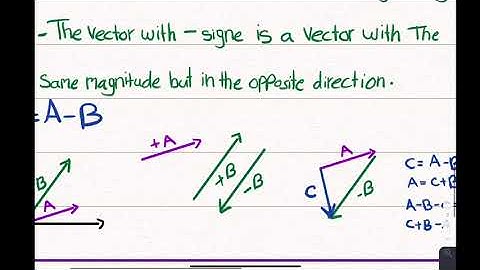 - The vector with - signe is a vector with the
same magnitude but in the opposite direction.
= A - B
+A
+B
-B
B
A
A
-B
C
C = A - B
A = C + B
A - B -
C + B -